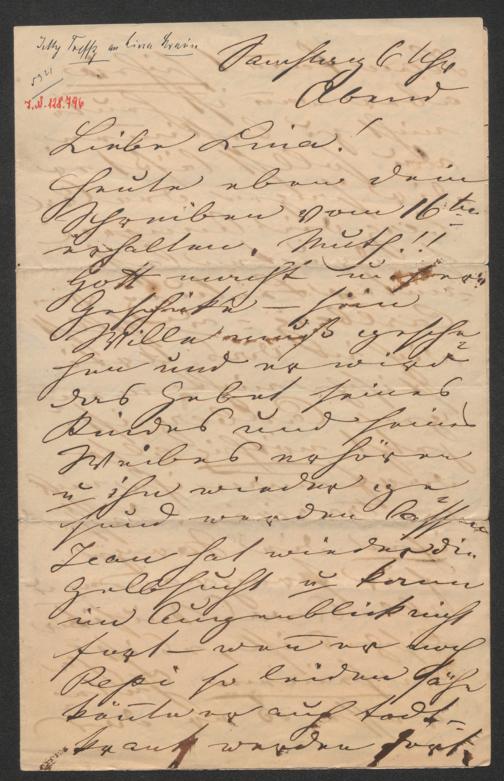 Jetty Treffz an Lina
I.N. 128.796
Samstag 6 Uhr
Abend
Liebe Lina!
Heute eben dein
Schreiben vom 16ten
erhalten. Muth!!
Gott macht unsere
Geschicke – sein
Wille muß gesche-
hen und er wird
das Gebet seines
Kindes und seines
Weibes erhören
u ihn wieder ge
sund werden lassen
Jean hat wieder die
Gelbsucht u kann
im Augenblick nicht
fort – wen̄ er noch
Pepi so leiden sähe
kön̄te er auch todt-
krank werden